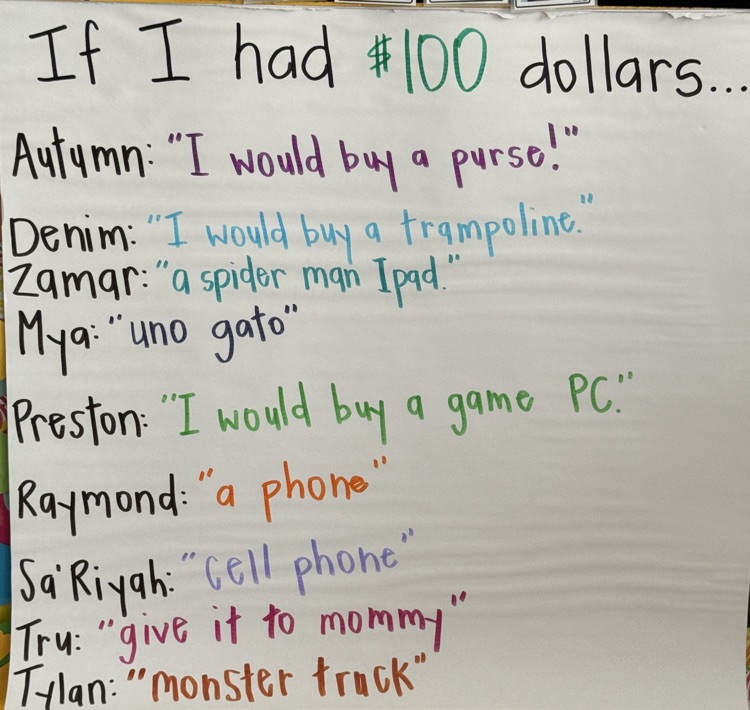 If I had $100 dollars...
Autumn: "I would buy a purse!"
Denim: "I would buy a trampoline."
Zamar: "a spider man Ipad."
Mya: "uno gato"
Preston: "I would buy a game PC."
Raymond: "a phone"
Sa'Riyah: "cell phone"
Tru: "give it to mommy"
Tylan: "monster truck"